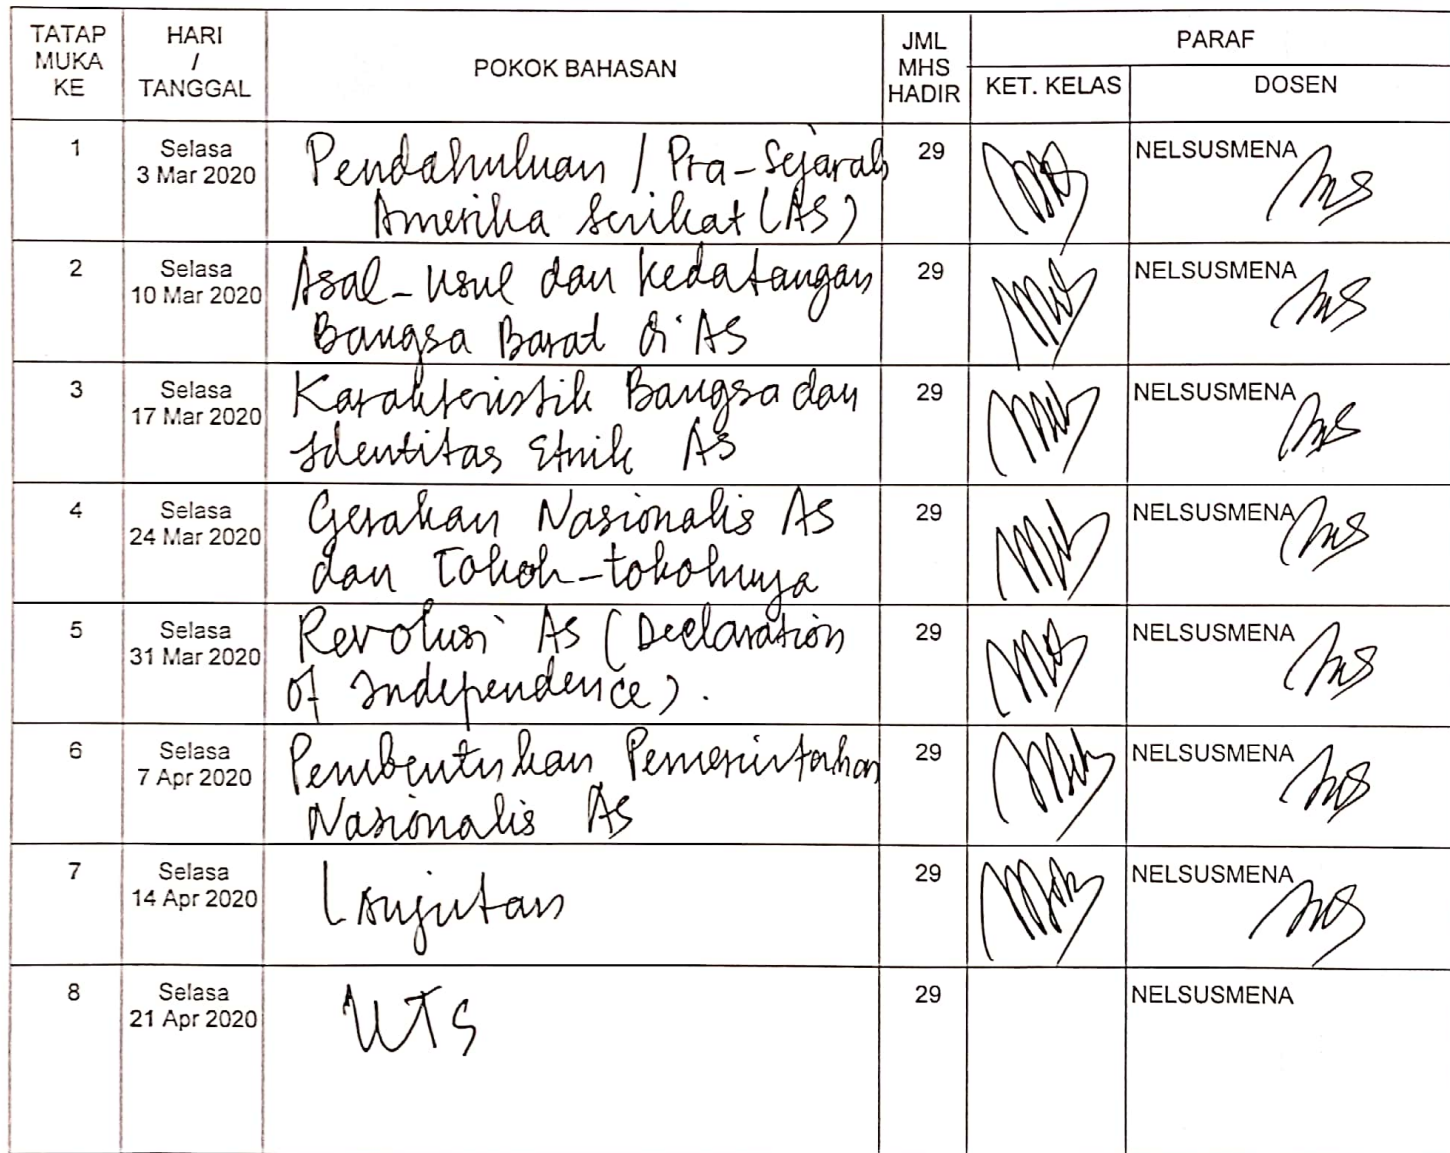 TATAP MUKA KE
HARI / TANGGAL
POKOK BAHASAN
JML MHS HADIR
PARAF
KET. KELAS
DOSEN
1
Selasa
3 Mar 2020
Pendahuluan / Pra-Sejarah
Amerika Serikat (AS)
29
NELSUSMENA
2
Selasa
10 Mar 2020
Asal-usul dan kedatangan
Bangsa Barat di AS
29
NELSUSMENA
3
Selasa
17 Mar 2020
Karakteristik Bangsa dan
Identitas Etnik AS
29
NELSUSMENA
4
Selasa
24 Mar 2020
Gerakan Nasionalis AS
dan Tokoh-tokohnya
29
NELSUSMENA
5
Selasa
31 Mar 2020
Revolusi AS (Declaration
of Independence).
29
NELSUSMENA
6
Selasa
7 Apr 2020
Pembentukan Pemerintahan
Nasionalis AS
29
NELSUSMENA
7
Selasa
14 Apr 2020
Lanjutan
29
NELSUSMENA
8
Selasa
21 Apr 2020
UTS
29
NELSUSMENA